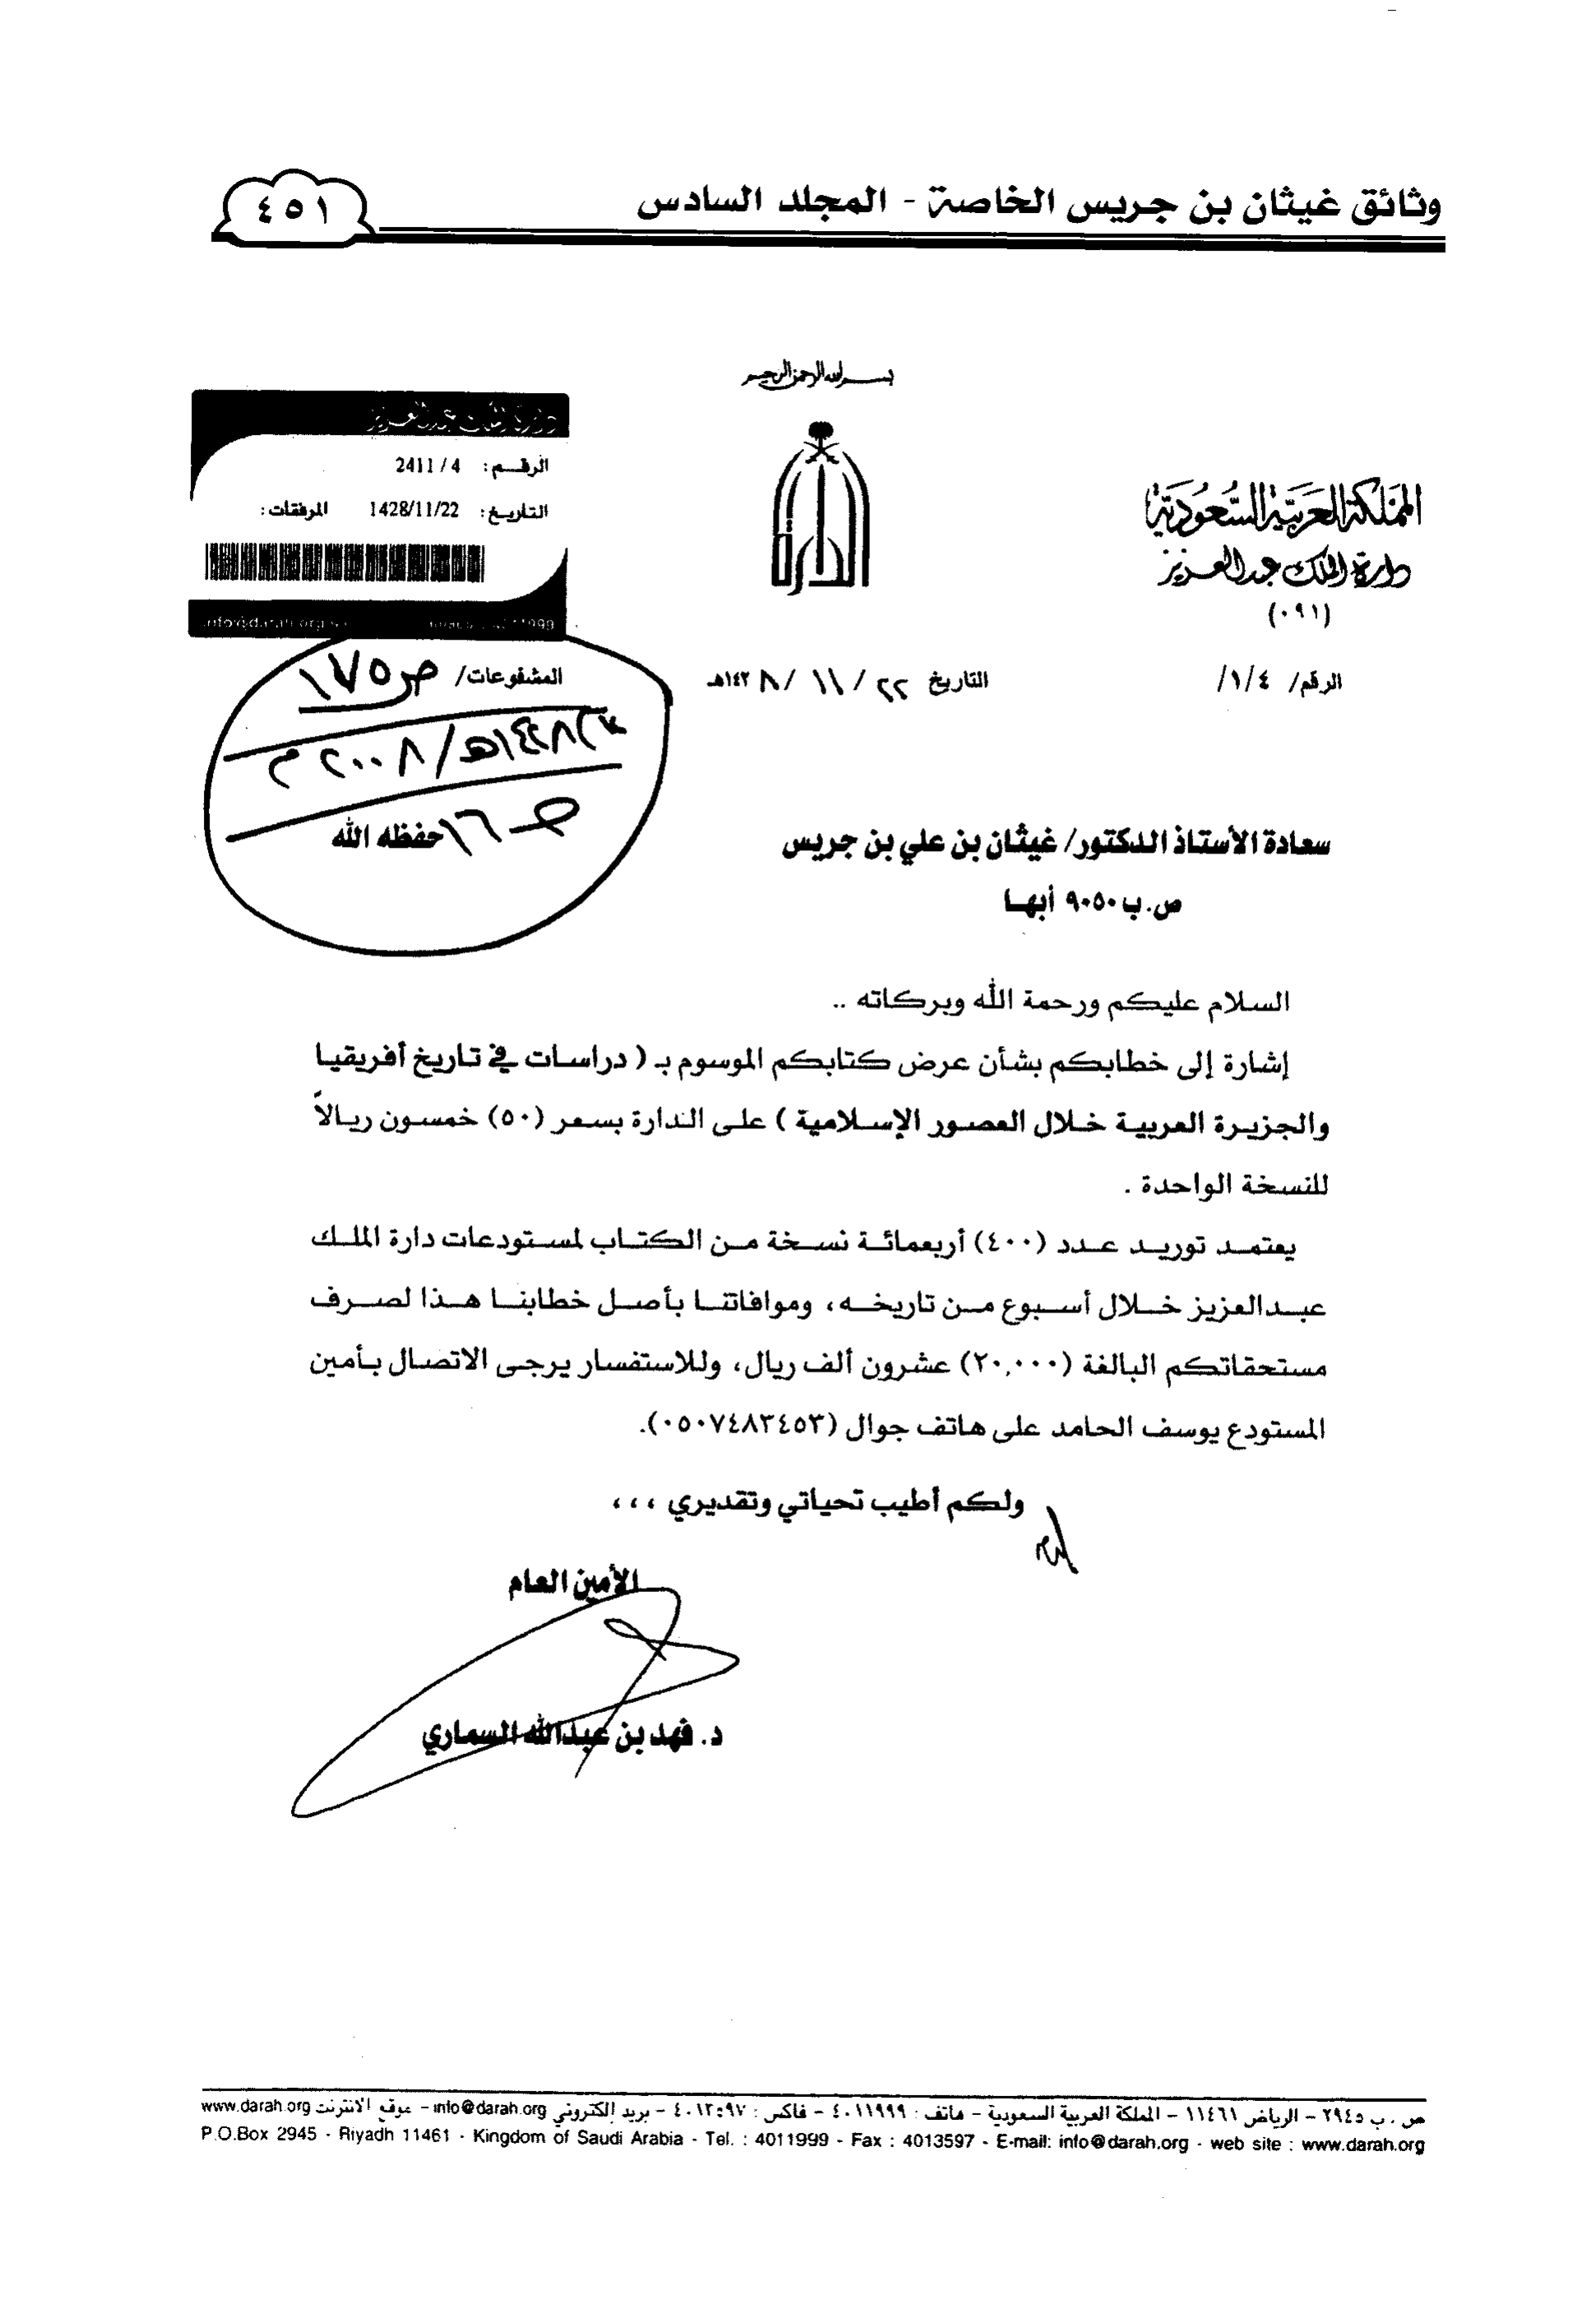 وثائق غيثان بن جريس الخاصة - المجلد السادس
٤٥١
بسم الله الرحمن الرحيم
المملكة العربية السعودية
دارة الملك عبدالعزيز
(٠٩١)
الدارة
دارة الملك عبدالعزيز
الرقم: 2411 / 4
التاريخ: 1428/11/22 المرفقات:
info@darah.org
الرقم/ ١/٤/
التاريخ ٢٢ / ١١ / ١٤٢٨هـ
المشفوعات/ ص١٧٥
١٤٢٨هـ/٢٠٠٨م
ص ١٦
سعادة الأستاذ الدكتور/ غيثان بن علي بن جريس حفظه الله
ص.ب ٩٠٥٠ أبها
السلام عليكم ورحمة الله وبركاته ..
إشارة إلى خطابكم بشأن عرض كتابكم الموسوم بـ ( دراسات في تاريخ أفريقيا
والجزيرة العربية خلال العصور الإسلامية ) على الدارة بسعر (٥٠) خمسون ريالاً
للنسخة الواحدة .
يعتمد توريد عدد (٤٠٠) أربعمائة نسخة من الكتاب لمستودعات دارة الملك
عبدالعزيز خلال أسبوع من تاريخه، وموافاتنا بأصل خطابنا هذا لصرف
مستحقاتكم البالغة (٢٠,٠٠٠) عشرون ألف ريال، وللاستفسار يرجى الاتصال بأمين
المستودع يوسف الحامد على هاتف جوال (٠٥٠٧٤٨٣٤٥٣).
ولكم أطيب تحياتي وتقديري ،،،
الأمين العام
د. فهد بن عبدالله السماري
ص . ب ٢٩٤٥ - الرياض ١١٤٦١ - المملكة العربية السعودية - هاتف : ٤٠١١٩٩٩ - فاكس : ٤٠١٣٥٩٧ - بريد إلكتروني info@darah.org - موقع الانترنت www.darah.org
P.O.Box 2945 - Riyadh 11461 - Kingdom of Saudi Arabia - Tel. : 4011999 - Fax : 4013597 - E-mail: info@darah.org - web site : www.darah.org